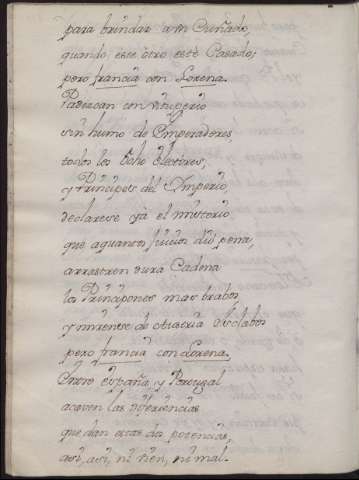 para brindar a un Cuñado,
quando este otro esté Casado;
pero francia con Lorena.
Padezcan con vituperio
sin humo de Emperadores,
todos los Ocho Electores,
y Principes del Imperio,
declarese ya el misterio
que aguantos juicios dió pena,
arrastren dura Cadena
los Principones mas brabos
y mientos de Esclabos
pero francia con Lorena.
Entre España, y Portugal
acaven las diferiencias
que dan estas dos potencias,
asi, asi, ni vien, ni mal.